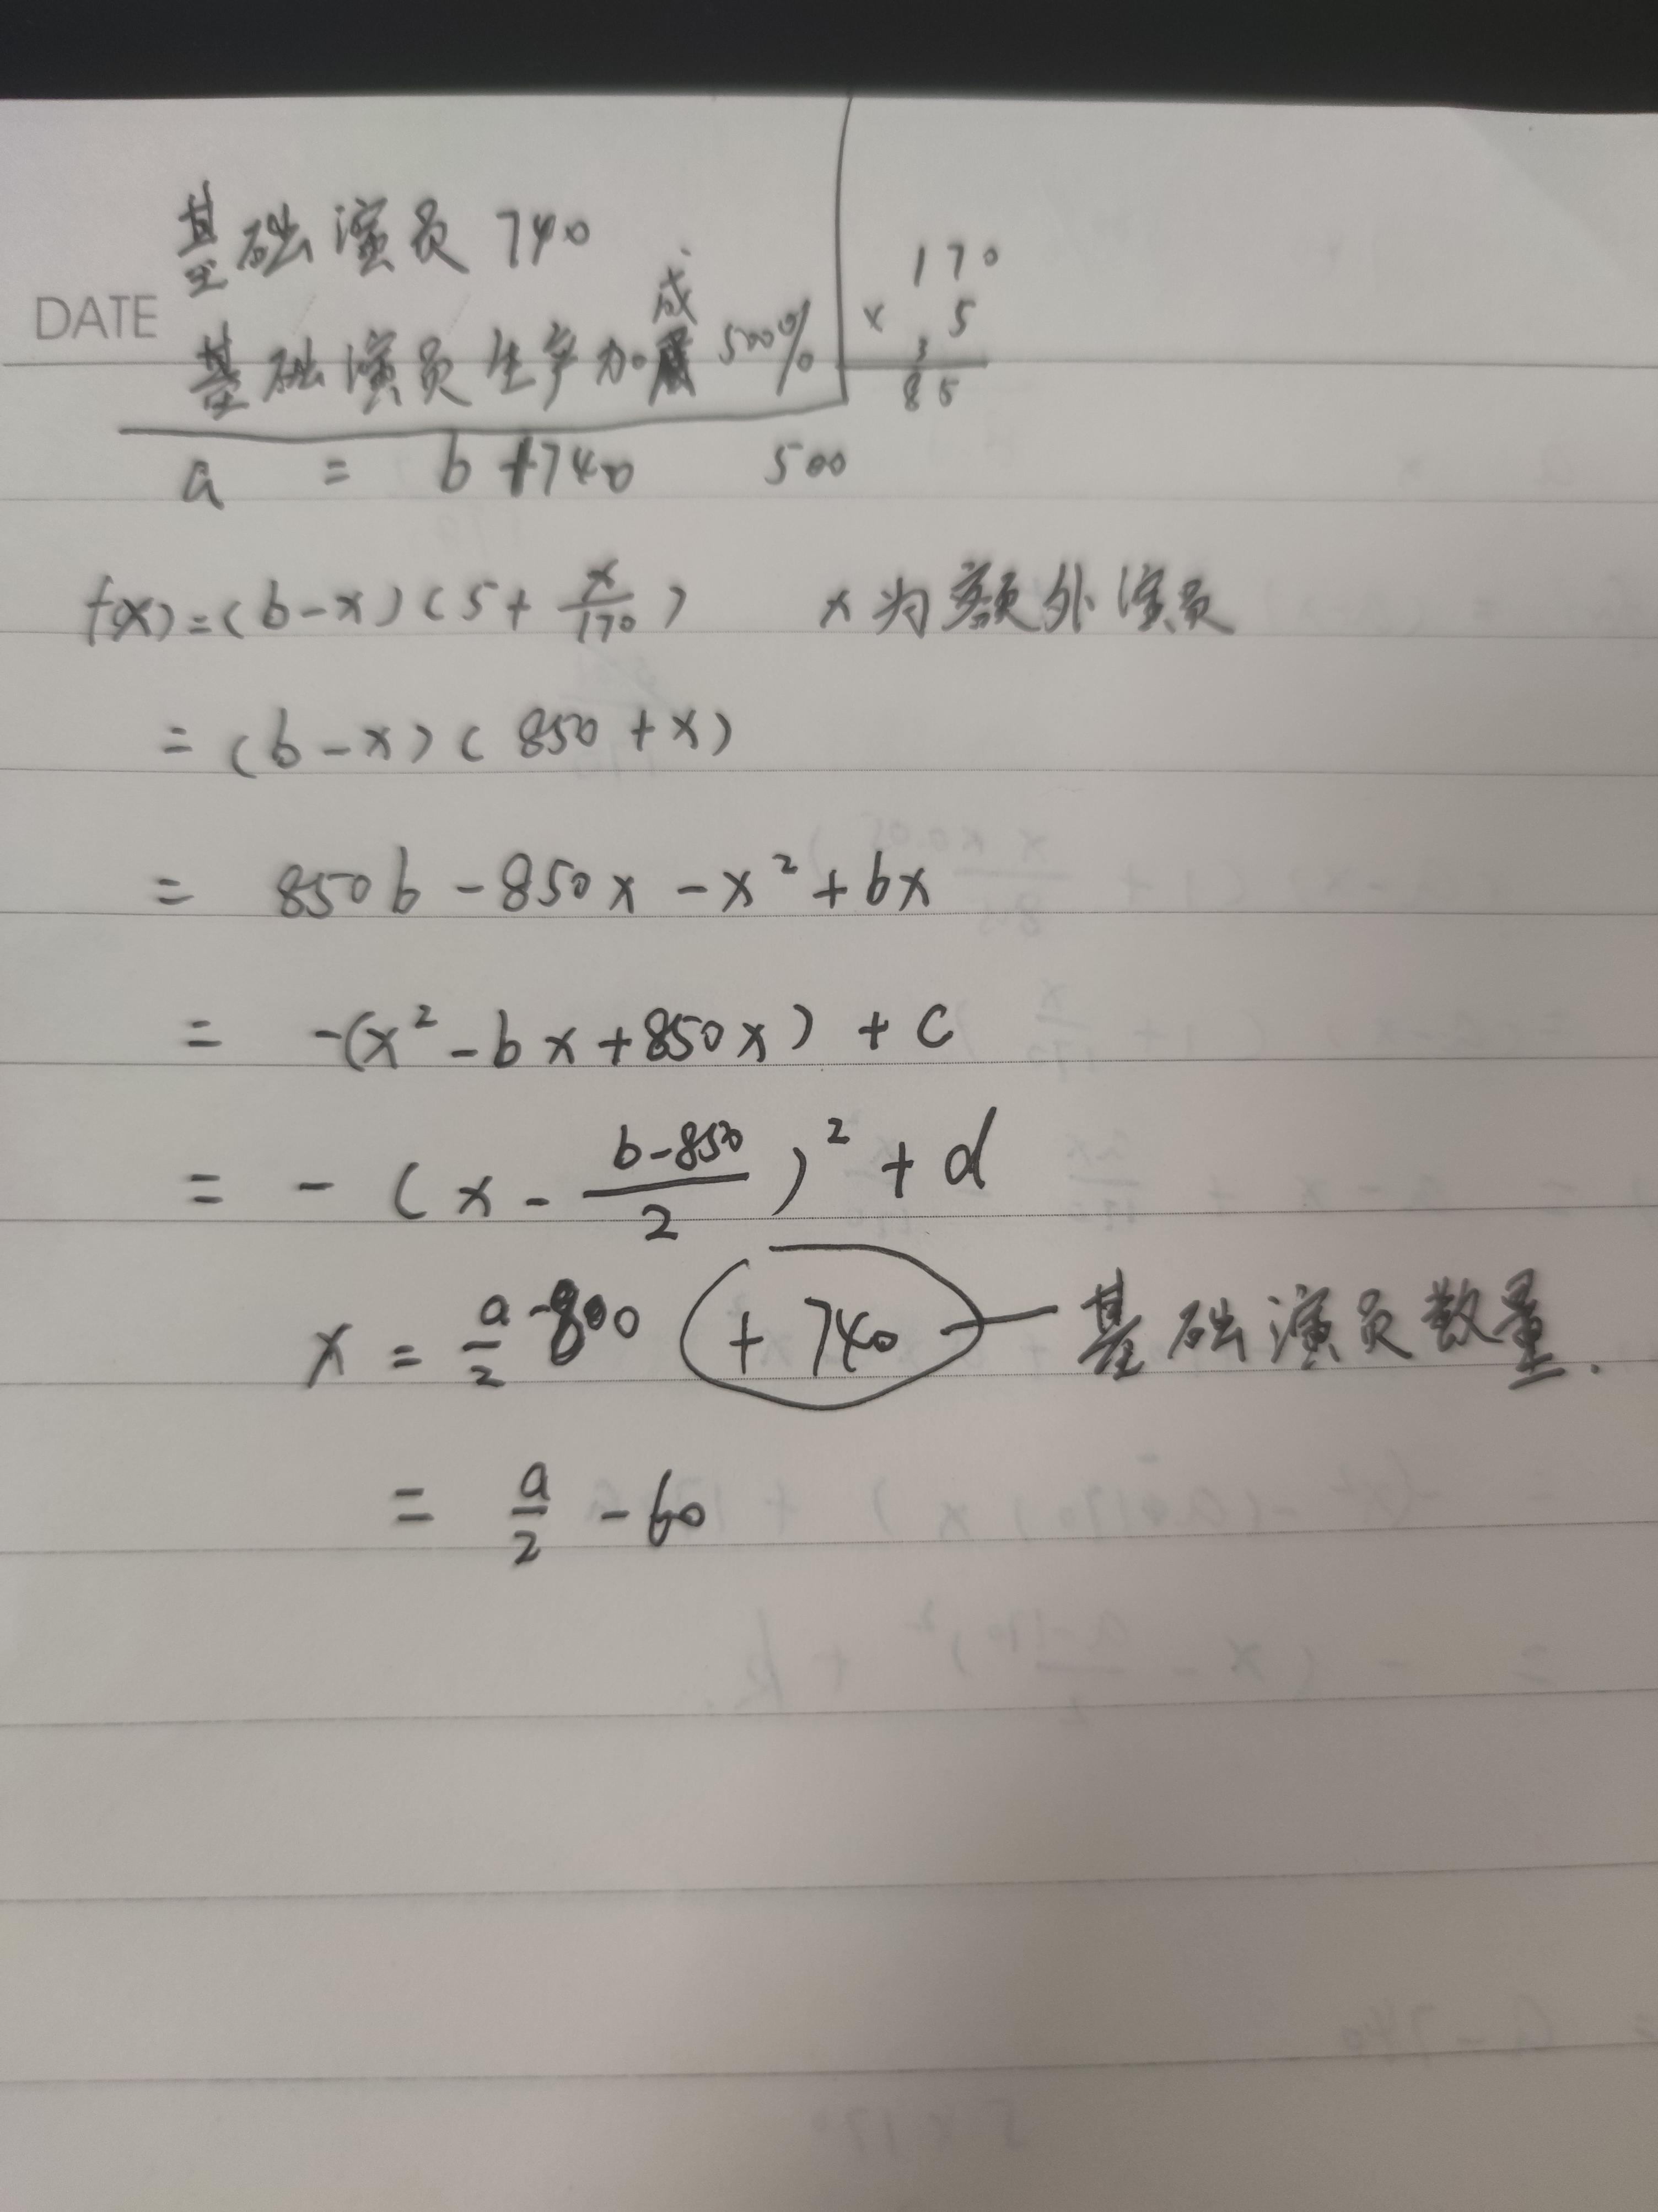 基础演员 740
DATE
基础演员生产加成 500%
170
× 5
3
85
a = b + 740 500
f(x) = (b-x)(5+x/170) x为额外演员
= (b-x)(850+x)
= 850b - 850x - x² + bx
= -(x² - bx + 850x) + c
= -(x - (b-850)/2)² + d
x = a/2 - 800 + 740 — 基础演员数量.
= a/2 - 60